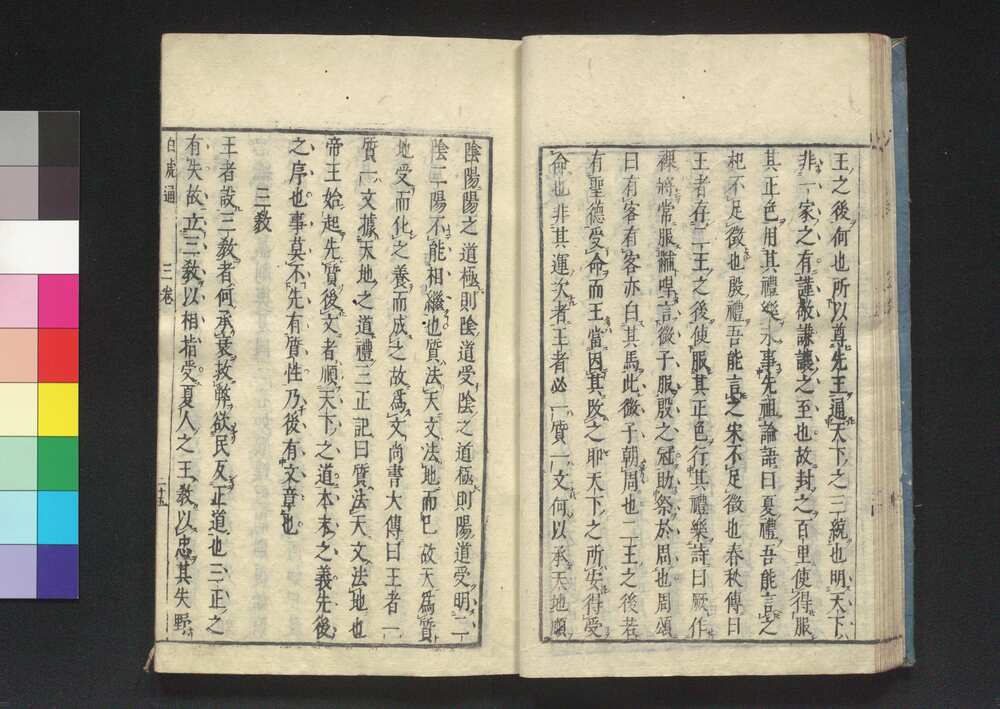 王之後何也所以尊先王通天下之三統也明天下
非一家之有謹敬謙讓之至也故封之百里使得服
其正色用其禮樂永事先祖論語曰夏禮吾能言之
杞不足徵也殷禮吾能言之宋不足徵也春秋傳曰
王者存二王之後使服其正色行其禮樂詩曰厥作
祼將常服黼冔言微子服殷之冠助祭於周也周頌
曰有客有客亦白其馬此微子朝周也二王之後若
有聖德受命而王當因其改之耶天下之所安得受
命也非其運次者王者必一質一文何以承天地順
陰陽陽之道極則陰道受陰之道極則陽道受明二
陰二陽不能相繼也質法天文法地而已故天爲質
地受而化之養而成之故爲文尚書大傳曰王者一
質一文據天地之道禮三正記曰質法天文法地也
帝王始起先質後文者順天下之道本末之義先後
之序也事莫不先有質性乃後有文章也
三敎
王者設三敎者何承衰救弊欲民反正道也三正之
有失故立三敎以相指受夏人之王敎以忠其失野
白虎通
三卷
二十五